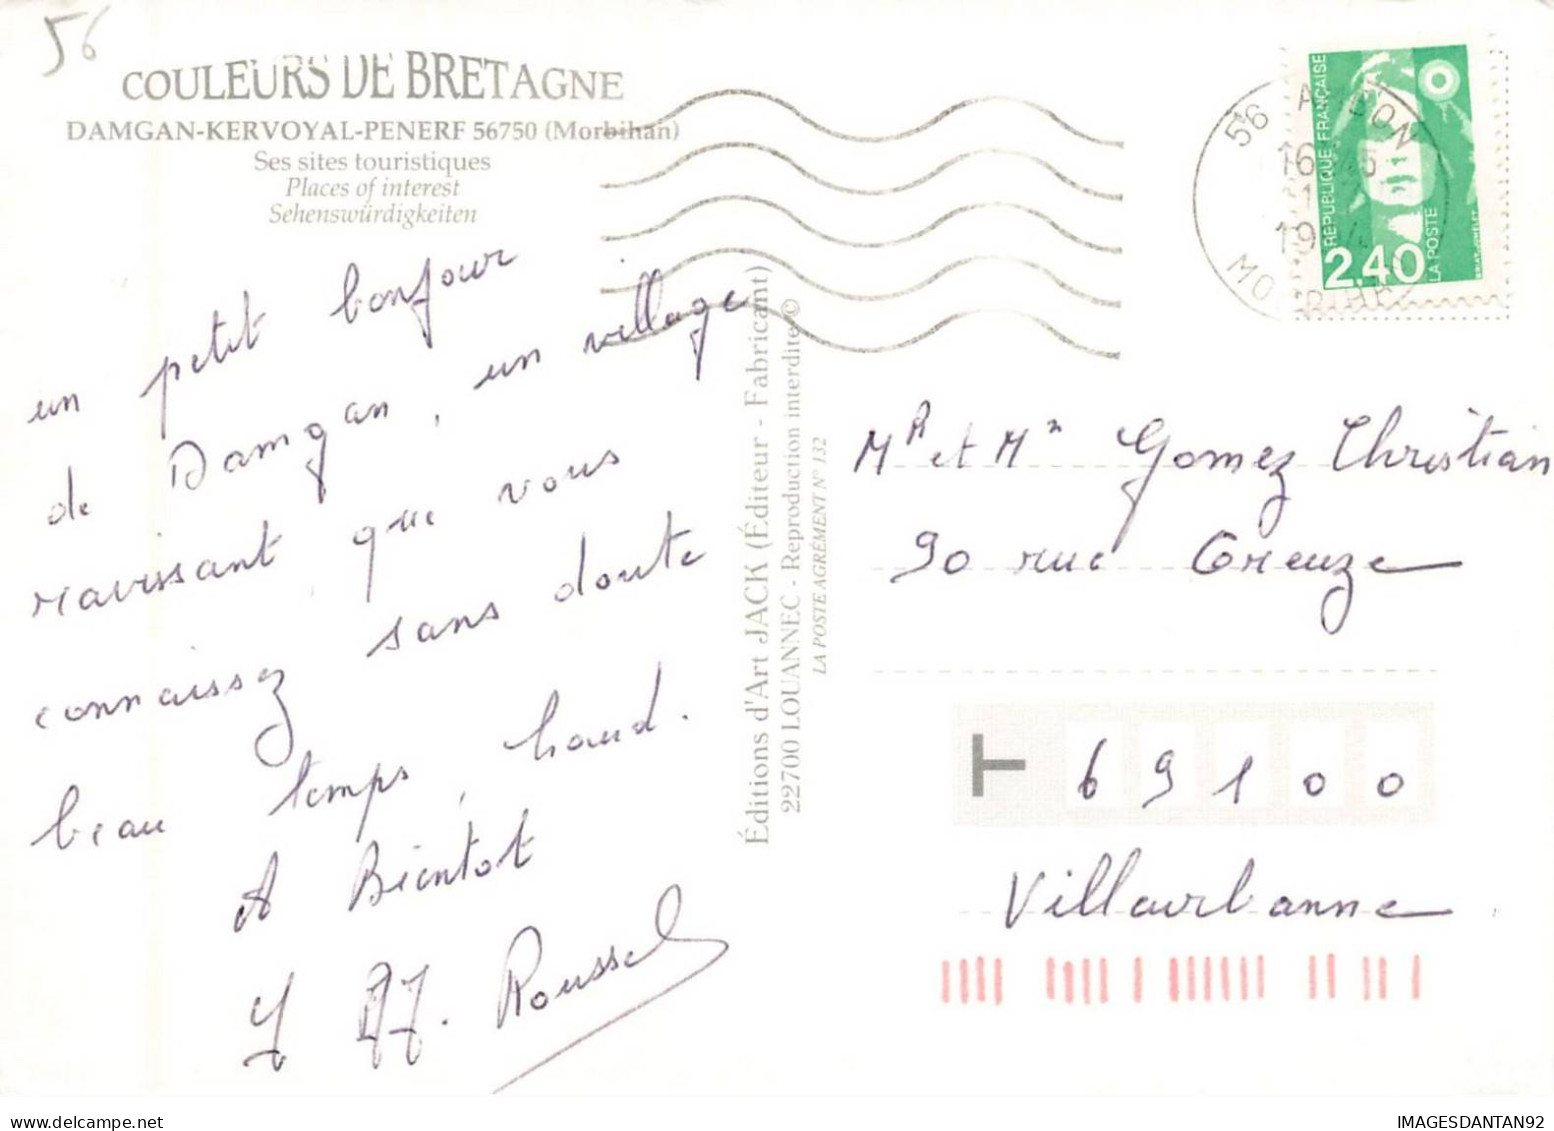 56
COULEURS DE BRETAGNE
DAMGAN-KERVOYAL-PENERF 56750 (Morbihan)
Ses sites touristiques
Places of interest
Sehenswürdigkeiten
un petit bonjour
de Damgan, un village
ravissant que vous
connaissez sans doute
beau temps, chaud.
A Bientot
Roussel
Éditions d'Art JACK (Éditeur - Fabricant)
22700 LOUANNEC - Reproduction interdite ©
LA POSTE AGRÉMENT N° 132
56
MORBIHAN
RÉPUBLIQUE FRANÇAISE
2,40
LA POSTE
Mr et Mme Gomez Christian
90 rue Greuze
69100
Villeurbanne
IMAGESDANTAN92